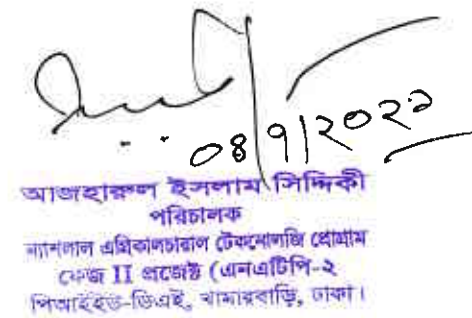 ০৪|৭|২০২১
আজহারুল ইসলাম সিদ্দিকী
পরিচালক
ন্যাশনাল এগ্রিকালচারাল টেকনোলজি প্রোগ্রাম
ফেজ II প্রজেক্ট (এনএটিপি-২
পিআইইউ-ডিএই, খামারবাড়ি, ঢাকা।